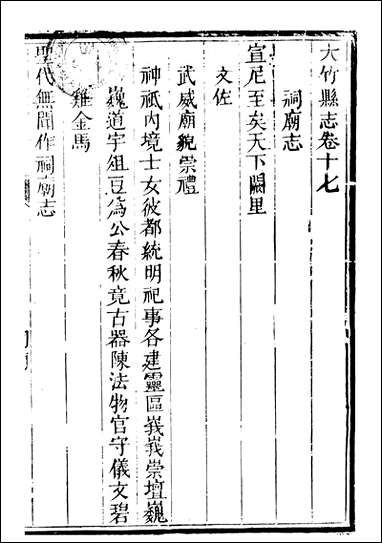 大竹縣志卷十七
祠廟志
宣尼至矣天下闕里
文佐
武威廟貌崇禮
神祇內境士女彼都統明祀事各建靈區峩峩崇壇巍
巍道宇俎豆為公春秋竟古器陳法物官守儀文碧
雞金馬
聖代無聞作祠廟志